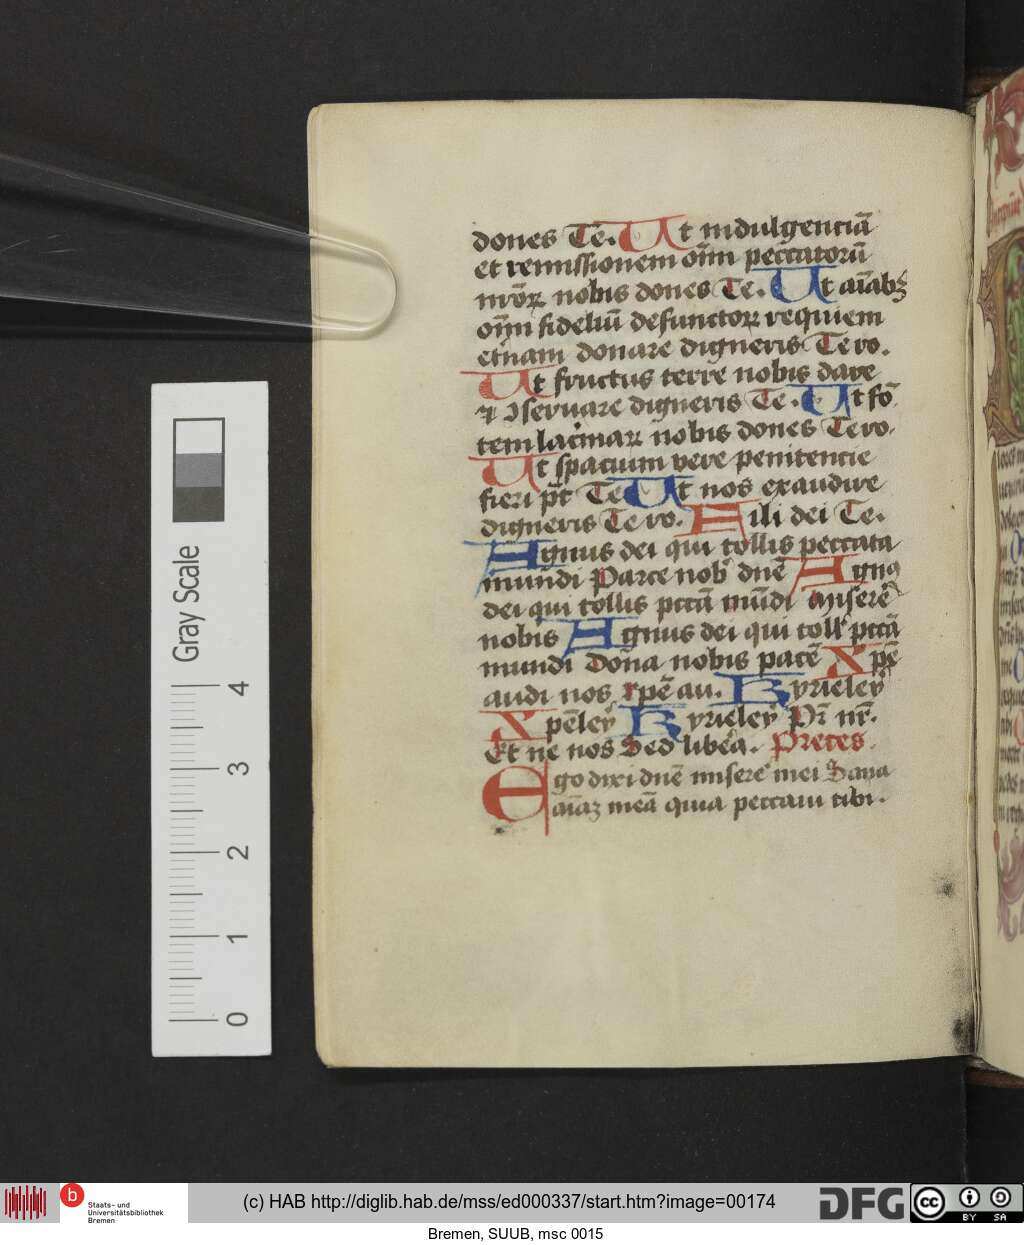 dones Te. Ut indulgenciā
et remissionem oīm peccatorū
nr̄ōꝝ nobis dones Te. Ut aīabꝫ
oīm fideliū defunctoꝝ requiem
et̄nam donare digneris Te ro.
Ut fructus terre nobis dare
⁊ ꝯseruare digneris Te. Ut fō
tem lacīmaꝝ nobis dones Te ro.
Ut spacium vere penitencie
fieri p̄t Te Ut nos exaudire
digneris Te ro. Fili dei Te.
Agnus dei qui tollis peccata
mundi Parce nob dn̄e Agnꝰ
dei qui tollis pctā mūdi Miserē
nobis Agnus dei qui toll pctā
mundi Dona nobis pacē Xpē
audi nos xpē au. Kyrieley
Xpēley Kyrieley Pr̄ nr̄.
Et ne nos Sed libera. Preces
Ego dixi dn̄e miserē mei Sana
aīaꝫ meā quia peccaui tibi.
Gray Scale
4
3
2
1
0
b
Staats- und
Universitätsbibliothek
Bremen
(c) HAB http://diglib.hab.de/mss/ed000337/start.htm?image=00174
DFG
cc BY SA
Bremen, SUUB, msc 0015